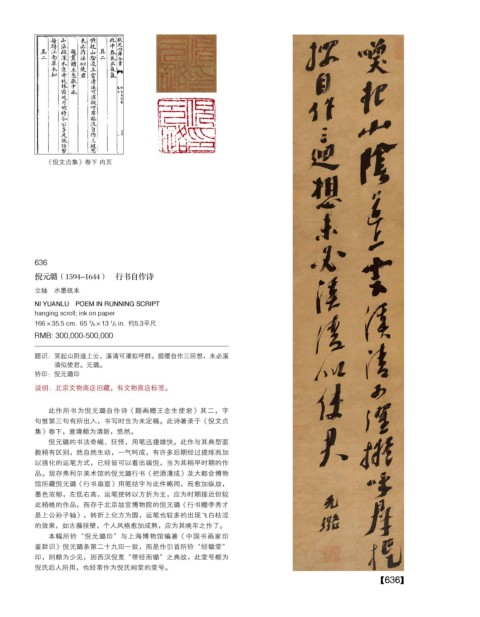 《倪文贞集》卷下 内页
636
倪元璐（1594–1644） 行书自作诗
立轴 水墨纸本
NI YUANLU POEM IN RUNNING SCRIPT
hanging scroll; ink on paper
166×35.5 cm. 65 3/8×13 1/2 in. 约5.3平尺
RMB: 300,000-500,000
题识：笑起山阴道上云，溪清可濯拟呼群。摇撄自作三回想，未必溪
清似使君。元璐。
钤印：倪元璐印
说明：北京文物商店旧藏，有文物商店标签。
此作所书为倪元璐自作诗《题画赠王念生使君》其二，字
句惟第三句有所出入，书写时当为未定稿。此诗著录于《倪文贞
集》卷下，意境颇为清新，悠然。
倪元璐的书法奇崛、狂怪，用笔迅捷雄快。此作与其典型面
貌稍有区别，然自然生动，一气呵成，有许多后期经过提炼而加
以强化的运笔方式，已经皆可以看出端倪，当为其稍早时期的作
品。现存弗利尔美术馆的倪元璐行书《把酒漫成》及大都会博物
馆所藏倪元璐《行书扇面》用笔结字与此件略同，而愈加纵放，
墨色浓郁，左低右高，运笔使转以方折为主，应为时期接近但较
此稍晚的作品，而存于北京故宫博物院的倪元璐《行书赠李秀才
是上公孙子轴》，转折上化方为圆，运笔也较多的出现飞白枯涩
的效果，如古藤挂壁，个人风格愈加成熟，应为其晚年之作了。
本幅所钤“倪元璐印”与上海博物馆编著《中国书画家印
鉴款识》倪元璐条第二十九印一致，而是作引首所钤“经锄堂”
印，则颇为少见，因西汉倪宽“带经而锄”之典故，此堂号颇为
倪氏后人所用，也经常作为倪氏祠堂的堂号。
【636】